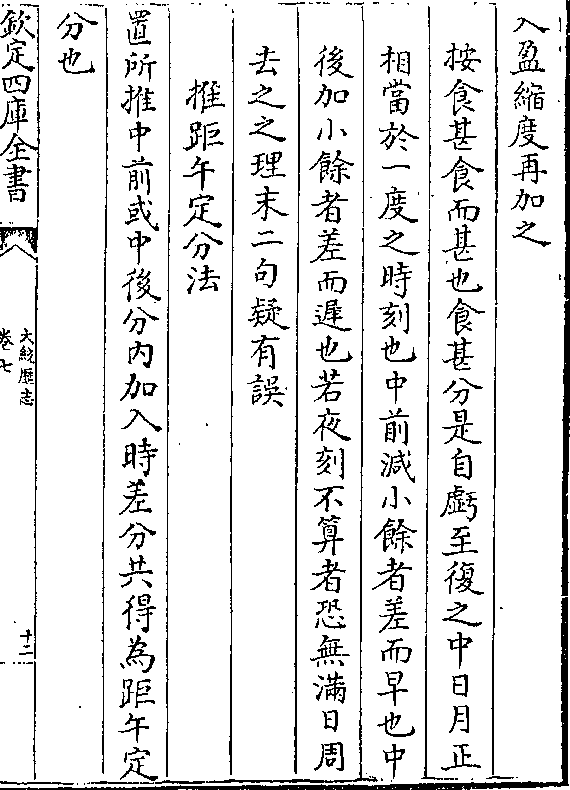 入盈縮度再加之
按食甚食而甚也食甚分是自虧至復之中日月正
相當於一度之時刻也中前減小餘者差而早也中
後加小餘者差而遲也若夜刻不算者恐無滿日周
去之之理末二句疑有誤
推距午定分法
置所推中前或中後分内加入時差分共得為距午定
分也
欽定四庫全書
大統歴志
卷七
十二